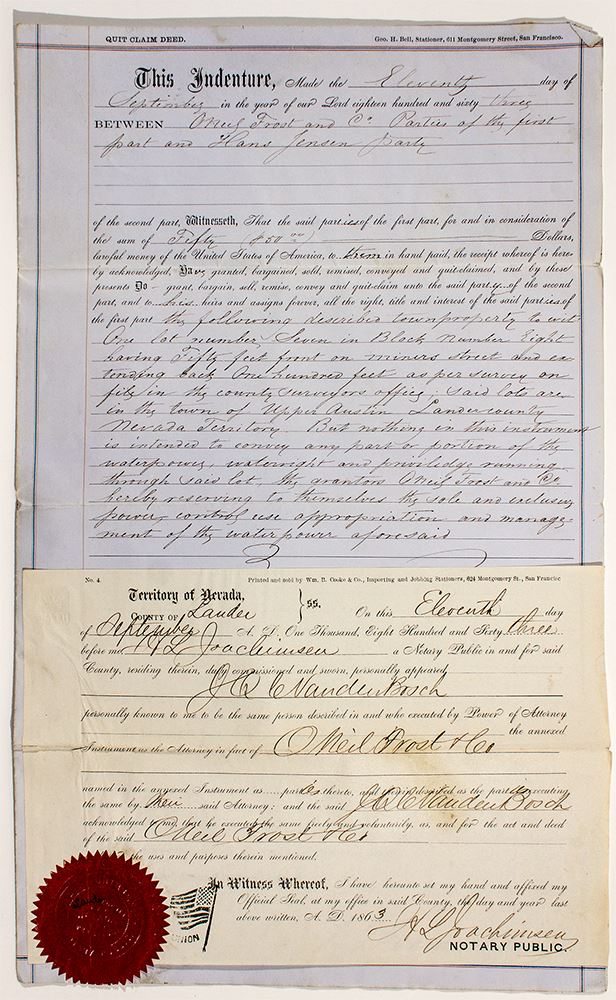 QUIT CLAIM DEED. Geo. H. Bell, Stationer, 611 Montgomery Street, San Francisco.
This Indenture, Made the Eleventh day of
September in the year of our Lord eighteen hundred and sixty three
BETWEEN O'Neil Frost and Co Parties of the first
part and Hans Jensen party
of the second part, Witnesseth, That the said parties of the first part, for and in consideration of
the sum of Fifty $50 00 Dollars,
lawful money of the United States of America, to them in hand paid, the receipt whereof is here-
by acknowledged, Have granted, bargained, sold, remised, conveyed and quit-claimed, and by these
presents Do grant, bargain, sell, remise, convey and quit-claim unto the said party of the second
part, and to his heirs and assigns forever, all the right, title and interest of the said parties of
the first part the following described townproperty to wit
One lot number Seven in Block Number Eight
having Fifty feet front on miners street and ex
tending back One hundred feet as per survey on
file in the county surveyors office; said lots are
in the town of Upper Austin Lander county
Nevada Territory. But nothing in this instrument
is intended to convey any part or portion of the
waterpower, waterright and priviledge running
through said lot, the grantors O'Neil Frost and Co
hereby reserving to themselves the sole and exclusive
power, control use appropriation and manage-
ment of the waterpower aforesaid
No. 4. Printed and sold by Wm. B. Cooke & Co., Importing and Jobbing Stationers, 624 Montgomery St., San Francisco
Territory of Nevada,
COUNTY OF Lander } ss. On this Eleventh day
of September A. D. One Thousand, Eight Hundred and Sixty three
before me, H L Joachimsen a Notary Public in and for said
County, residing therein, duly commissioned and sworn, personally appeared
J H C VandenBosch
personally known to me to be the same person described in and who executed by Power of Attorney
the annexed
Instrument as the Attorney in fact of O'Neil Frost & Co
named in the annexed Instrument as parties thereto, and therein described as the parties executing
the same by their said Attorney; and the said VandenBosch
acknowledged to me, that he executed the same freely and voluntarily, as, and for the act and deed
of the said O'Neil Frost & Co
the uses and purposes therein mentioned.
In Witness Whereof, I have hereunto set my hand and affixed my
Official Seal, at my office in said County, the day and year last
above written, A. D. 1863
UNION
H L Joachimsen
NOTARY PUBLIC.